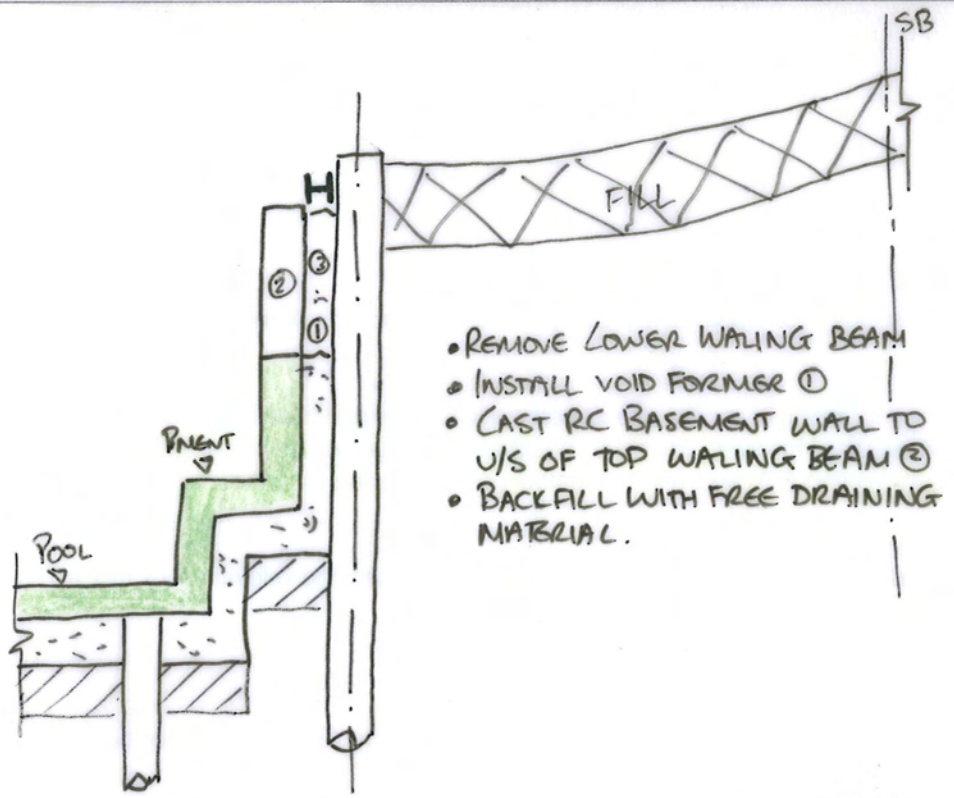 SB
FILL
③
②
①
• REMOVE LOWER WALING BEAM
• INSTALL VOID FORMER ①
• CAST RC BASEMENT WALL TO
U/S OF TOP WALING BEAM ②
• BACKFILL WITH FREE DRAINING
MATERIAL.
BMENT
POOL